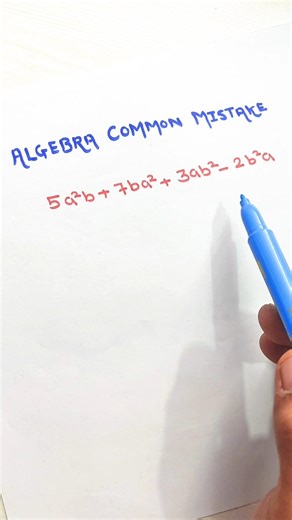 ALGEBRA COMMON MISTAKE
5a²b + 7ba² + 3ab² - 2b²a